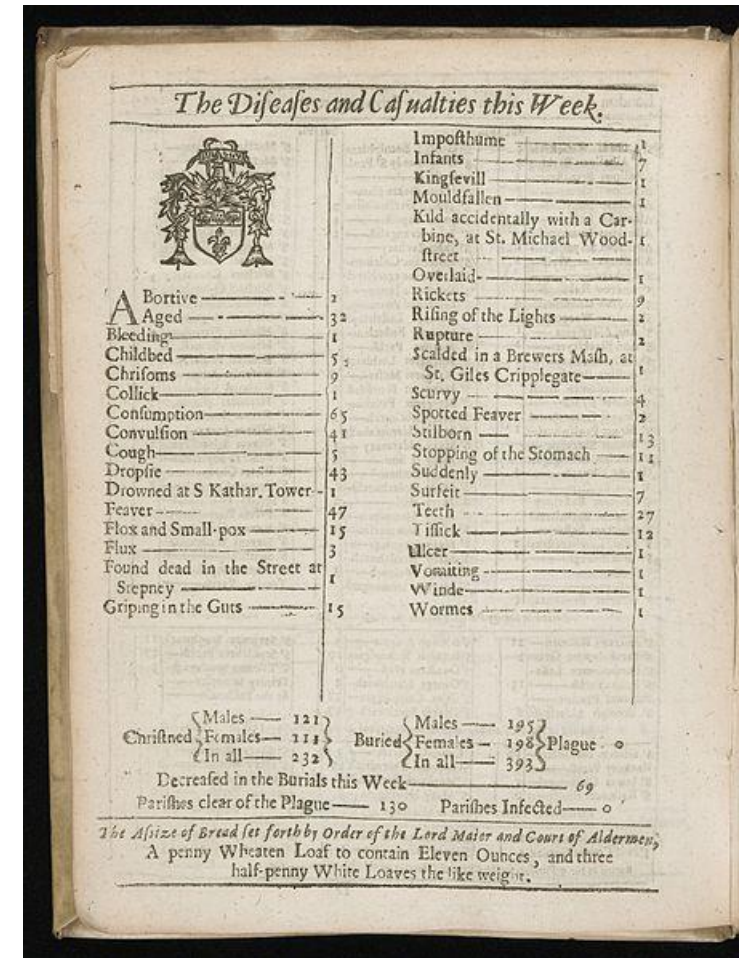 The Diſeaſes and Caſualties this Week.
ABortive 2
Aged 32
Bleeding 1
Childbed 5
Chriſoms 9
Collick 1
Conſumption 65
Convulſion 41
Cough 5
Dropſie 43
Drowned at S Kathar. Tower 1
Feaver 47
Flox and Small-pox 15
Flux 3
Found dead in the Street at
Stepney 1
Griping in the Guts 15
Impoſthume 1
Infants 7
Kingſevill 1
Mouldfallen 1
Kild accidentally with a Car-
bine, at St. Michael Wood- 1
ſtreet
Overlaid 1
Rickets 9
Riſing of the Lights 2
Rupture 2
Scalded in a Brewers Maſh, at
St. Giles Cripplegate 1
Scurvy 4
Spotted Feaver 2
Stilborn 13
Stopping of the Stomach 11
Suddenly 1
Surfeit 7
Teeth 27
Tiſſick 12
Ulcer 1
Vomiting 1
Winde 1
Wormes 1
Males 121 Males 195
Chriſtned Females 111 Buried Females 198 Plague 0
In all 232 In all 393
Decreaſed in the Burials this Week 69
Pariſhes clear of the Plague 130 Pariſhes Infected 0
The Aſsize of Bread ſet forth by Order of the Lord Maior and Court of Aldermen,
A penny Wheaten Loaf to contain Eleven Ounces, and three
half-penny White Loaves the like weight.